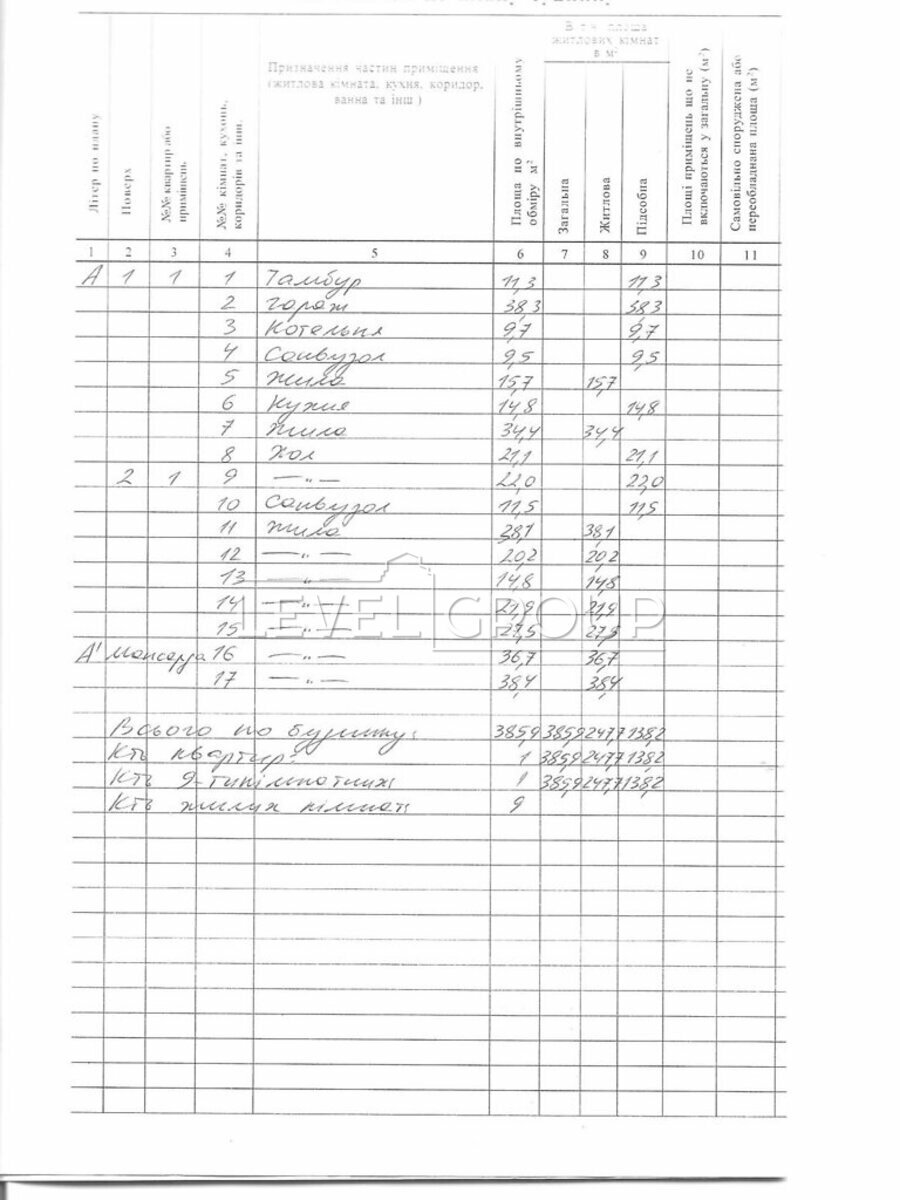 В т.ч. площа
житлових кімнат
в м²
Призначення частин приміщення
(житлова кімната, кухня, коридор,
ванна та інш.)
Літер по плану
Поверх
№№ квартир або
приміщень
№№ кімнат, кухонь,
коридорів та інш.
Площа по внутрішньому
обміру м²
Загальна
Житлова
Підсобна
Площі приміщень що не
включаються у загальну (м²)
Самовільно споруджена або
переобладнана площа (м²)
1 2 3 4 5 6 7 8 9 10 11
А 1 1 1 Тамбур 11,3 11,3
2 Гараж 38,3 38,3
3 Котельня 9,7 9,7
4 Санвузол 9,5 9,5
5 Жила 15,7 15,7
6 Кухня 14,8 14,8
7 Жила 34,4 34,4
8 Хол 21,1 21,1
2 1 9 —"— 22,0 22,0
10 Санвузол 11,5 11,5
11 Жила 38,1 38,1
12 —"— 20,2 20,2
13 —"— 14,8 14,8
14 —"— 21,9 21,9
15 —"— 27,5 27,5
LEVEL GROUP
А' мансарда 16 —"— 36,7 36,7
17 —"— 38,4 38,4
Всього по будинку: 385,9 385,9 247,7 138,2
К-ть квартир: 1 385,9 247,7 138,2
К-ть 9-тикімнатних 1 385,9 247,7 138,2
К-ть жилих кімнат 9